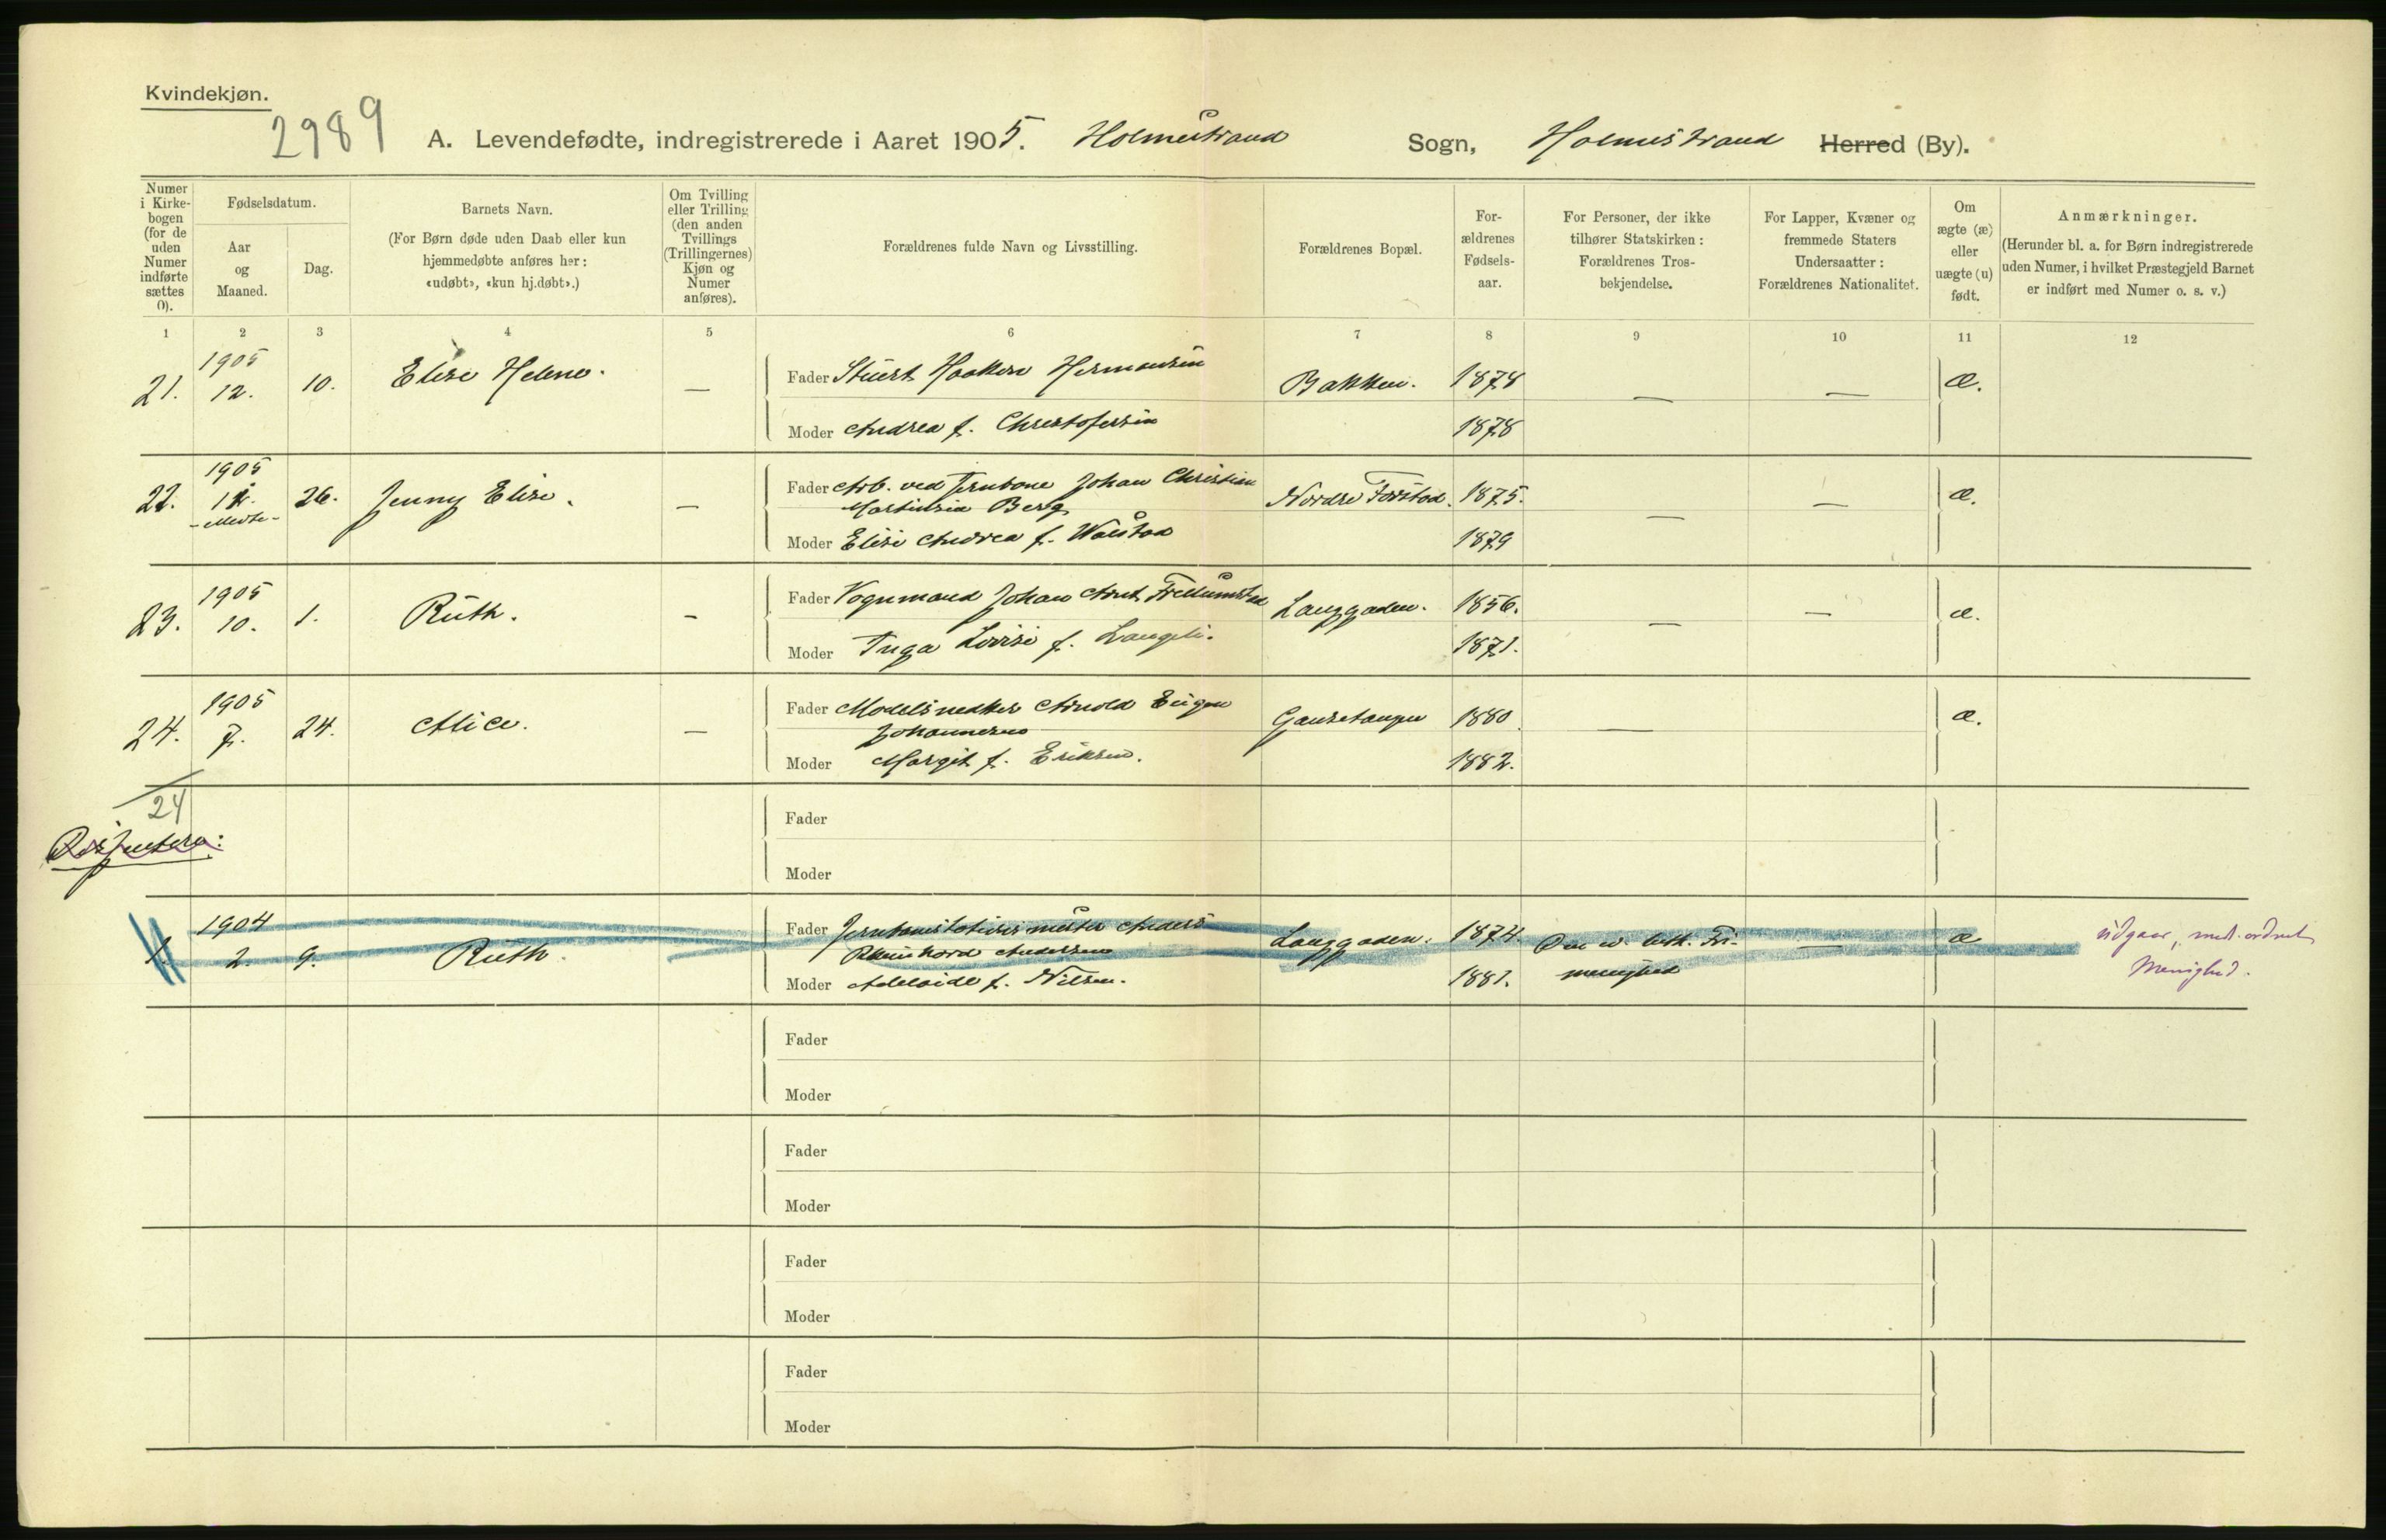 Kvindekjøn.
2989
A. Levendefødte, indregistrerede i Aaret 1905. Holmestrand Sogn, Holmestrand Herred (By).
Numer i Kirke- bogen (for de uden Numer indførte sættes 0).
Fødselsdatum.
Aar og Maaned.
Dag.
Barnets Navn.
(For Børn døde uden Daab eller kun hjemmedøbte anføres her: «udøbt», «kun hj.døbt».)
Om Tvilling eller Trilling (den anden Tvillings (Trillingernes) Kjøn og Numer anføres).
Forældrenes fulde Navn og Livsstilling.
Forældrenes Bopæl.
For- ældrenes Fødsels- aar.
For Personer, der ikke tilhører Statskirken: Forældrenes Tros- bekjendelse.
For Lapper, Kvæner og fremmede Staters Undersaatter: Forældrenes Nationalitet.
Om ægte (æ) eller uægte (u) født.
Anmærkninger.
(Herunder bl. a. for Børn indregistrerede uden Numer, i hvilket Præstegjeld Barnet er indført med Numer o. s. v.)
1 2 3 4 5 6 7 8 9 10 11 12
21. 1905 12. 10. Elise Helene. — Fader Stuert Haaken Hermansen Bakken. 1878 — — æ.
Moder Andrea f. Christofersen 1878
22. 1905 12. 26. Jenny Elise. — Fader Arb. ved Jernbane Johan Christian Nordre Forstad. 1875. — — æ.
Martinsen Berg
Moder Elise Andrea f. Walstad 1879
23. 1905 10. 1. Ruth. — Fader Vognmand Johan Arnt Langgaden. 1856. — — æ.
Moder Inga Lovise f. 1871.
24. 1905 7. 24. Alice. — Fader Modelsnedker Arnold Eugen Gausetangen 1880. — æ.
Johannesen
Moder Margit f. Eriksen. 1882.
24
Fader
Moder
1. 1904 2. 9. Ruth. Fader Anders Langgaden. 1874. Den ev. luth. Fri- — æ udgaar, med. ordnet
Andersen menighed Menighed.
Moder Adelaide f. Nilsen. 1881.
Fader
Moder
Fader
Moder
Fader
Moder
Fader
Moder